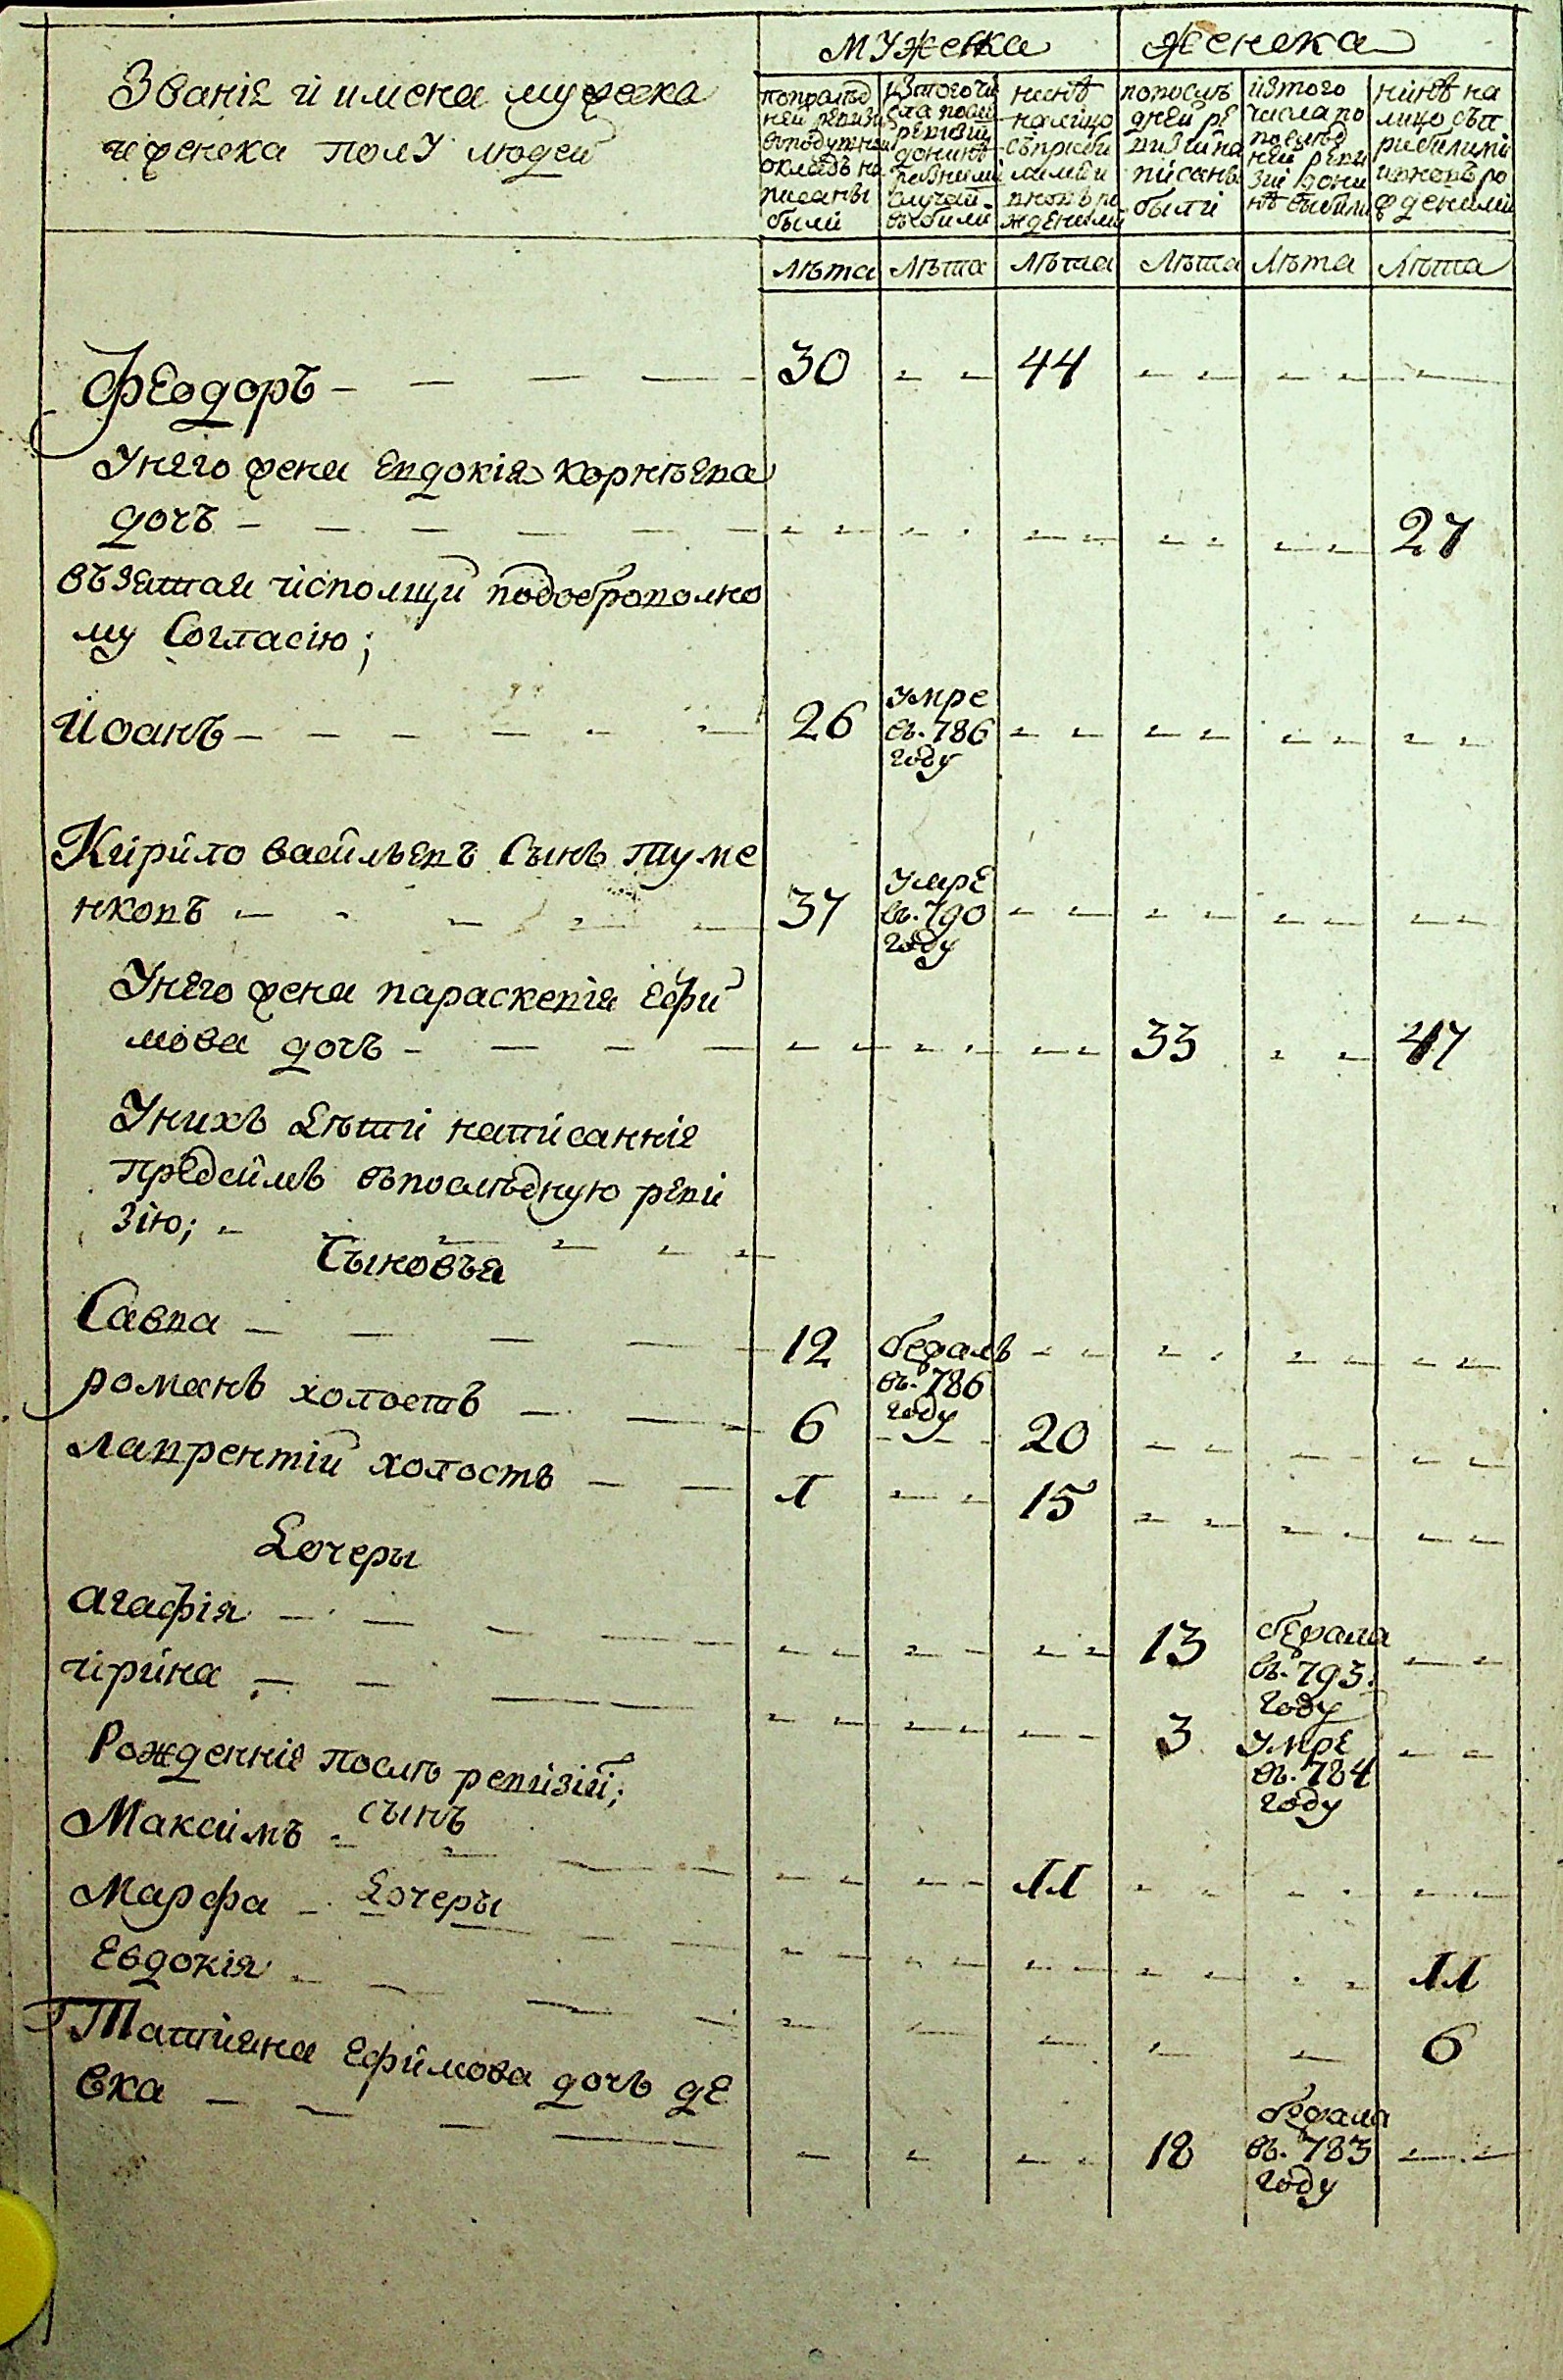 Званія и имена мужеска
и женска полу людей
мужска
женска
попослед
ней ревизи
въподушном
окладъ на
писаны
были
изтого чи
сла после
ревизіи
донинѣ
разними
случаи
выбили
нинѣ
налицо
съприби
лими и
вновь ро
жденими
попослѣ
дней ре
визіи на
писаны
были
изтого
числа по
послѣд
ней реви
зіи дони
нѣ выбили
нинѣ на
лицо съп
рибилими
ивновъ ро
ждеными
лѣта лѣта лѣта лѣта лѣта лѣта
Феодоръ 30 44
Унего жена Евдокія корнѣева
дочъ 27
възятая исполщи подоброполно
му согласію;
Иоанъ 26 умре въ. 786 году
Кирило васильевъ сынъ туме
нковъ 37 умре въ. 790 году
Унего жена параскевія Ефи
мова дочъ 33 47
Унихъ дѣти написанніе
предсимъ въпослѣдную реви
зію;
Сыновья
Савва 12 бежалъ въ. 786 году
романъ холостъ 6 20
лаврентій холостъ 1 15
Дочеры
агафія 13 бежала въ. 793. году
ирина 3 умре въ. 784 году
Рожденніе послѣ ревизіи;
сынъ
Максимъ 11
Дочеры
Марфа 11
Евдокія 6
Татіяна Ефимова дочъ де
вка 18 бежала въ. 783 году